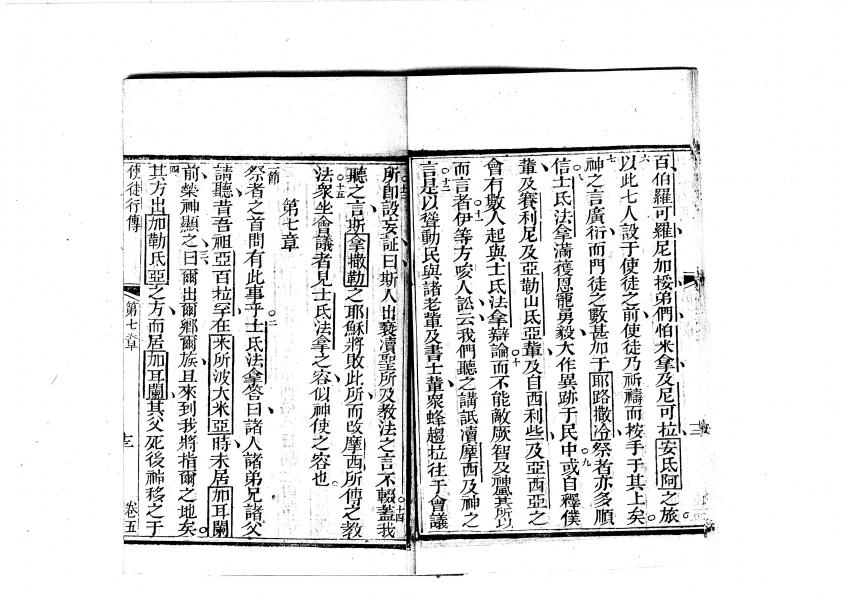 百伯羅可羅尼加挼弟們怕米拿及尼可拉安氐阿之旅
六
以此七人設于使徒之前使徒乃祈禱而按手于其上矣
七
神之言廣衍而門徒之數甚加于耶路撒冷祭者亦多順
八
信士氐法拿滿獲恩寵勇毅大作異跡于民中或自釋僕
九
輩及賽利尼及亞勒山氐亞輩及自西利些及亞西亞之
十
會有數人起與士氐法拿辯論而不能敵厥智及神風其所以
十一
而言者伊等方唆人訟云我們聽之講詆瀆摩西及神之
十二
言是以聳動民與諸老輩及書士輩衆蜂趨拉往于會議
所即設妄証曰斯人出褻瀆聖所及教法之言不輟蓋我
十四
聽之言斯拿撒勒之耶穌將敗此所而改摩西所傳之教
十五
法衆坐會議者見士氐法拿之容似神使之容也
第七章
一節
祭者之首問有此事乎士氐法拿答曰諸人諸弟兄諸父
二
請聽昔吾祖亞百拉罕在米所波大米亞時未居加耳蘭
前榮神顯之曰爾出爾鄉爾族且來到我將指爾之地矣
三
四
其方出加勒氐亞之方而居加耳蘭其父死後神移之于
使徒行傳
第七章
卷五